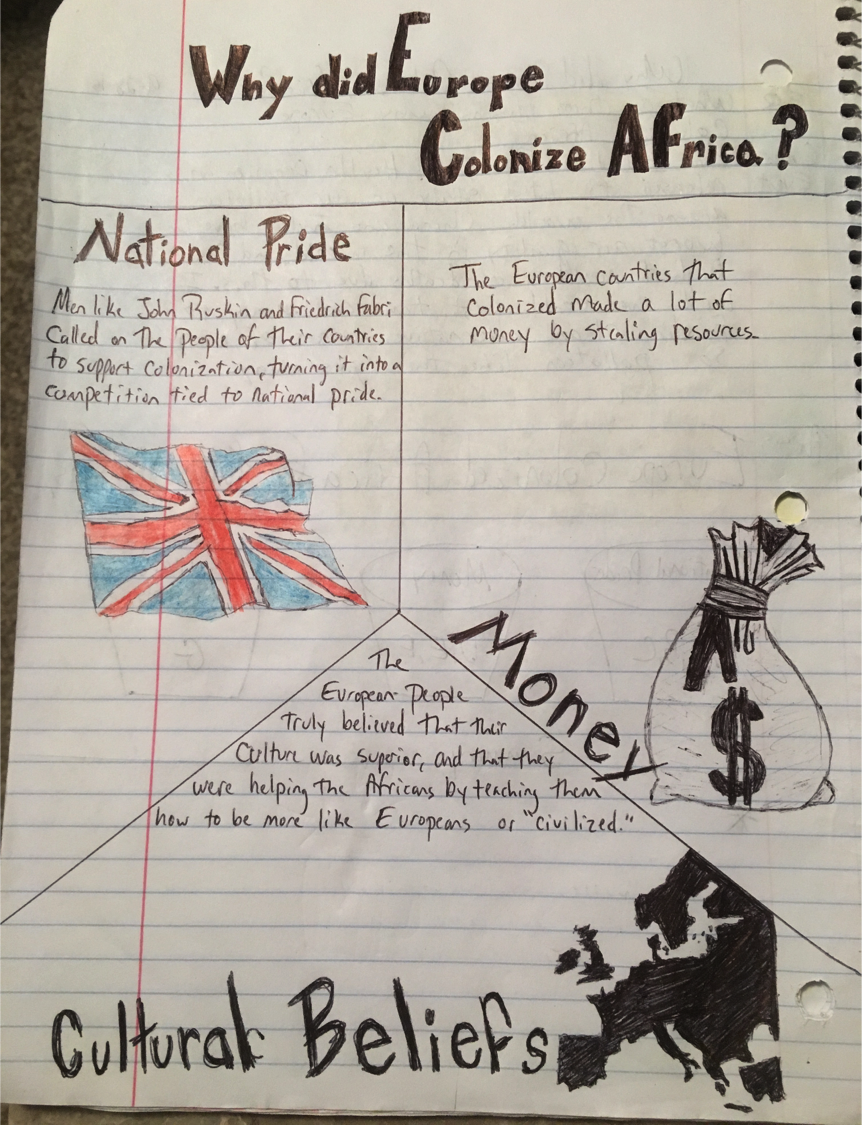 Why did Europe
Colonize AFrica?
National Pride
Men like John Ruskin and Friedrich Fabri
Called on The People of Their Countries
to support Colonization, turning it into a
competition tied to national pride.
The European countries that
Colonized made a lot of
money by stealing resources.
Money
$
The
European People
Truly believed that their
Culture was superior, and that they
were helping the Africans by teaching them
how to be more like Europeans or "civilized."
Cultural Beliefs